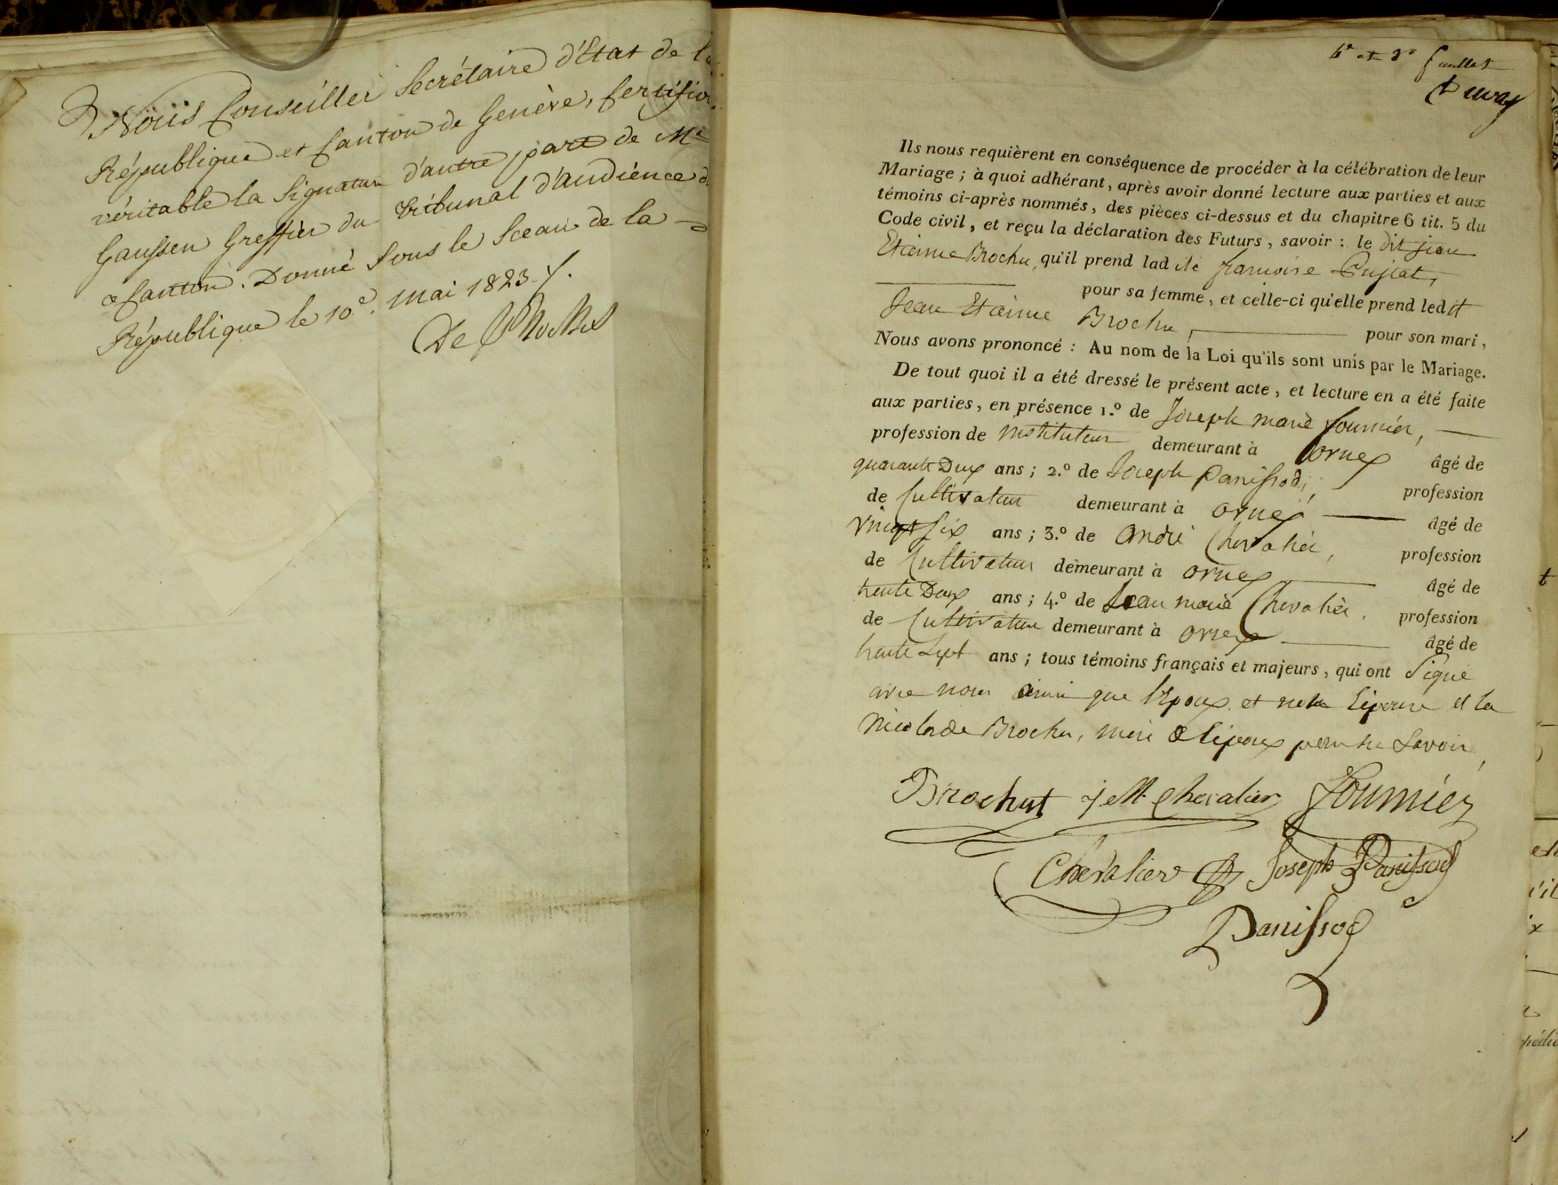 Nous Conseiller Secrétaire d'Etat de la
République et Canton de Genève, Certifions
véritable la Signature d'autre part de Mr
Gaussen Greffier du Tribunal d'audience d
Canton. Donné Sous le Sceau de la
République le 10e. Mai 1823 ./.
De
et 3e feuillet
Ils nous requièrent en conséquence de procéder à la célébration de leur
Mariage ; à quoi adhérant, après avoir donné lecture aux parties et aux
témoins ci-après nommés, des pièces ci-dessus et du chapitre 6 tit. 5 du
Code civil, et reçu la déclaration des Futurs, savoir : le dit jean
Etienne Brochu, qu'il prend lad ite francoise
pour sa femme, et celle-ci qu'elle prend led it
Jean Etienne Brochu, pour son mari,
Nous avons prononcé : Au nom de la Loi qu'ils sont unis par le Mariage.
De tout quoi il a été dressé le présent acte, et lecture en a été faite
aux parties, en présence 1.º de Joseph marie fournier,
profession de instituteur demeurant à ornex âgé de
quarante Deux ans ; 2.º de Joseph Panissod, profession
de Cultivateur demeurant à ornex âgé de
vingt six ans ; 3.º de andré Chevalier, profession
de Cultivateur demeurant à ornex âgé de
trente Deux ans ; 4.º de Jean marie Chevalier, profession
de Cultivateur demeurant à ornex âgé de
trente Sept ans ; tous témoins français et majeurs, qui ont Signé
avec nous ainsi que l'époux et non l'épouse et la
Brochu, mère de l'époux pour ne Savoir,
Brochut J M Chevalier Fournier
Chevalier A Joseph Panissod
Panissod